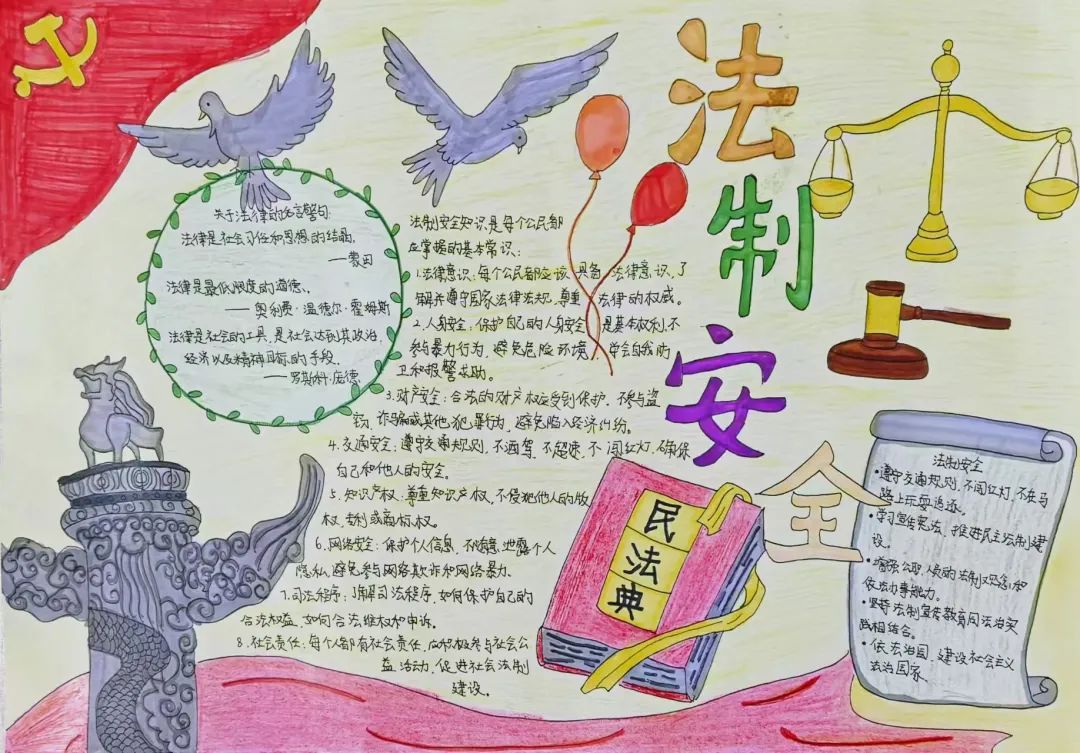 法制安全
关于法律的名言警句:
法律是社会习俗和思想的结晶。
——蒙田
法律是最低限度的道德。
——奥利费·温德尔·霍姆斯
法律是社会的工具,是社会达到其政治,
经济以及精神目标的手段。
——罗斯科·庞德
法制安全知识是每个公民都
应掌握的基本常识:
1.法律意识:每个公民都应该具备法律意识,了
解并遵守国家法律法规,尊重法律的权威。
2.人身安全:保护自己的人身安全是基本权利,不
参与暴力行为,避免危险环境,学会自我防
卫和报警求助。
3.财产安全:合法的财产权应受到保护,不参与盗
窃,诈骗或其他犯罪行为,避免陷入经济纠纷。
4.交通安全:遵守交通规则,不酒驾,不超速,不闯红灯,确保
自己和他人的安全。
5.知识产权:尊重知识产权,不侵犯他人的版
权,专利或商标权。
6.网络安全:保护个人信息,不随意泄露个人
隐私,避免参与网络欺诈和网络暴力。
7.司法程序:了解司法程序,如何保护自己的
合法权益,如何合法维权和申诉。
8.社会责任:每个人都有社会责任,应积极参与社会公
益活动,促进社会法制
建设。
民法典
法制安全
•遵守交通规则,不闯红灯,不在马
路上玩耍追逐。
•学习宣传宪法,推进民主法制建
设。
•增强公职人员的法制观念和
依法办事能力。
•坚持法制宣传教育同法治实
践相结合。
•依法治国,建设社会主义
法治国家。